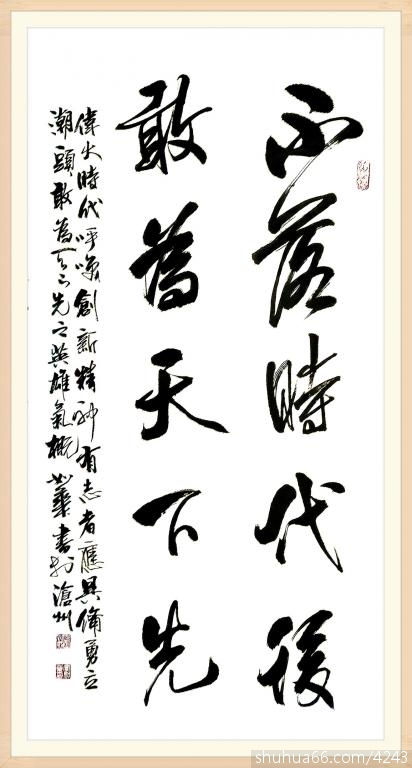 不落時代後
敢為天下先
偉大時代呼喚創新精神有志者應具備勇立
潮頭敢為天下先之英雄氣概 華書於滄州
shuhua66.com/4243